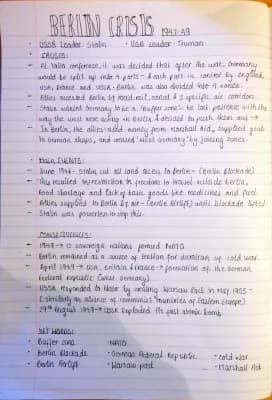 BERLIN CRISIS 1947-49
· USSR Leader: Stalin · USA Leader: Truman
· CAUSES:
- At Yalta conference, it was decided that after the war, Germany
would be split up into 4 parts - each part in control by England,
USA, France and USSR. Berlin was also divided into 4 zones.
- Allies accessed Berlin by road, rail, canal & 3 specific air corridors.
- Stalin wanted Germany to be a 'buffer zone'.
way the west were using in Berlin & decided to push them out →
- In Berlin, the allies used money from Marshall Aid, supplied goods
to German shops, and created 'West Germany' by joining zones.
MAIN EVENTS:
- June 1948: Stalin cut all land access to Berlin - (Berlin Blockade)
- This resulted in restriction to freedom to travel outside Berlin,
food shortage and lack of basic goods like medicines and fuel.
- Allies supplied to Berlin by air - (Berlin Airlift) until blockade lifted
- Stalin was powerless to stop this.
CONSEQUENCES:
- 1949 → 12 sovereign nations formed NATO
- Berlin remained as a source of tension for duration of cold war.
- April 1949 → USA, Britain & France → formation of the German
Federal Republic (West Germany)
- USSR responded to NATO by creating Warsaw Pact in May 1955 -
(similarly an alliance of communist countries of Eastern Europe)
- 29th August 1949 → USSR exploded its first atomic bomb.
KEY WORDS:
· Buffer zone · NATO
· Berlin Blockade · German Federal Republic · Cold War
· Berlin Airlift · Warsaw Pact · Marshall Aid